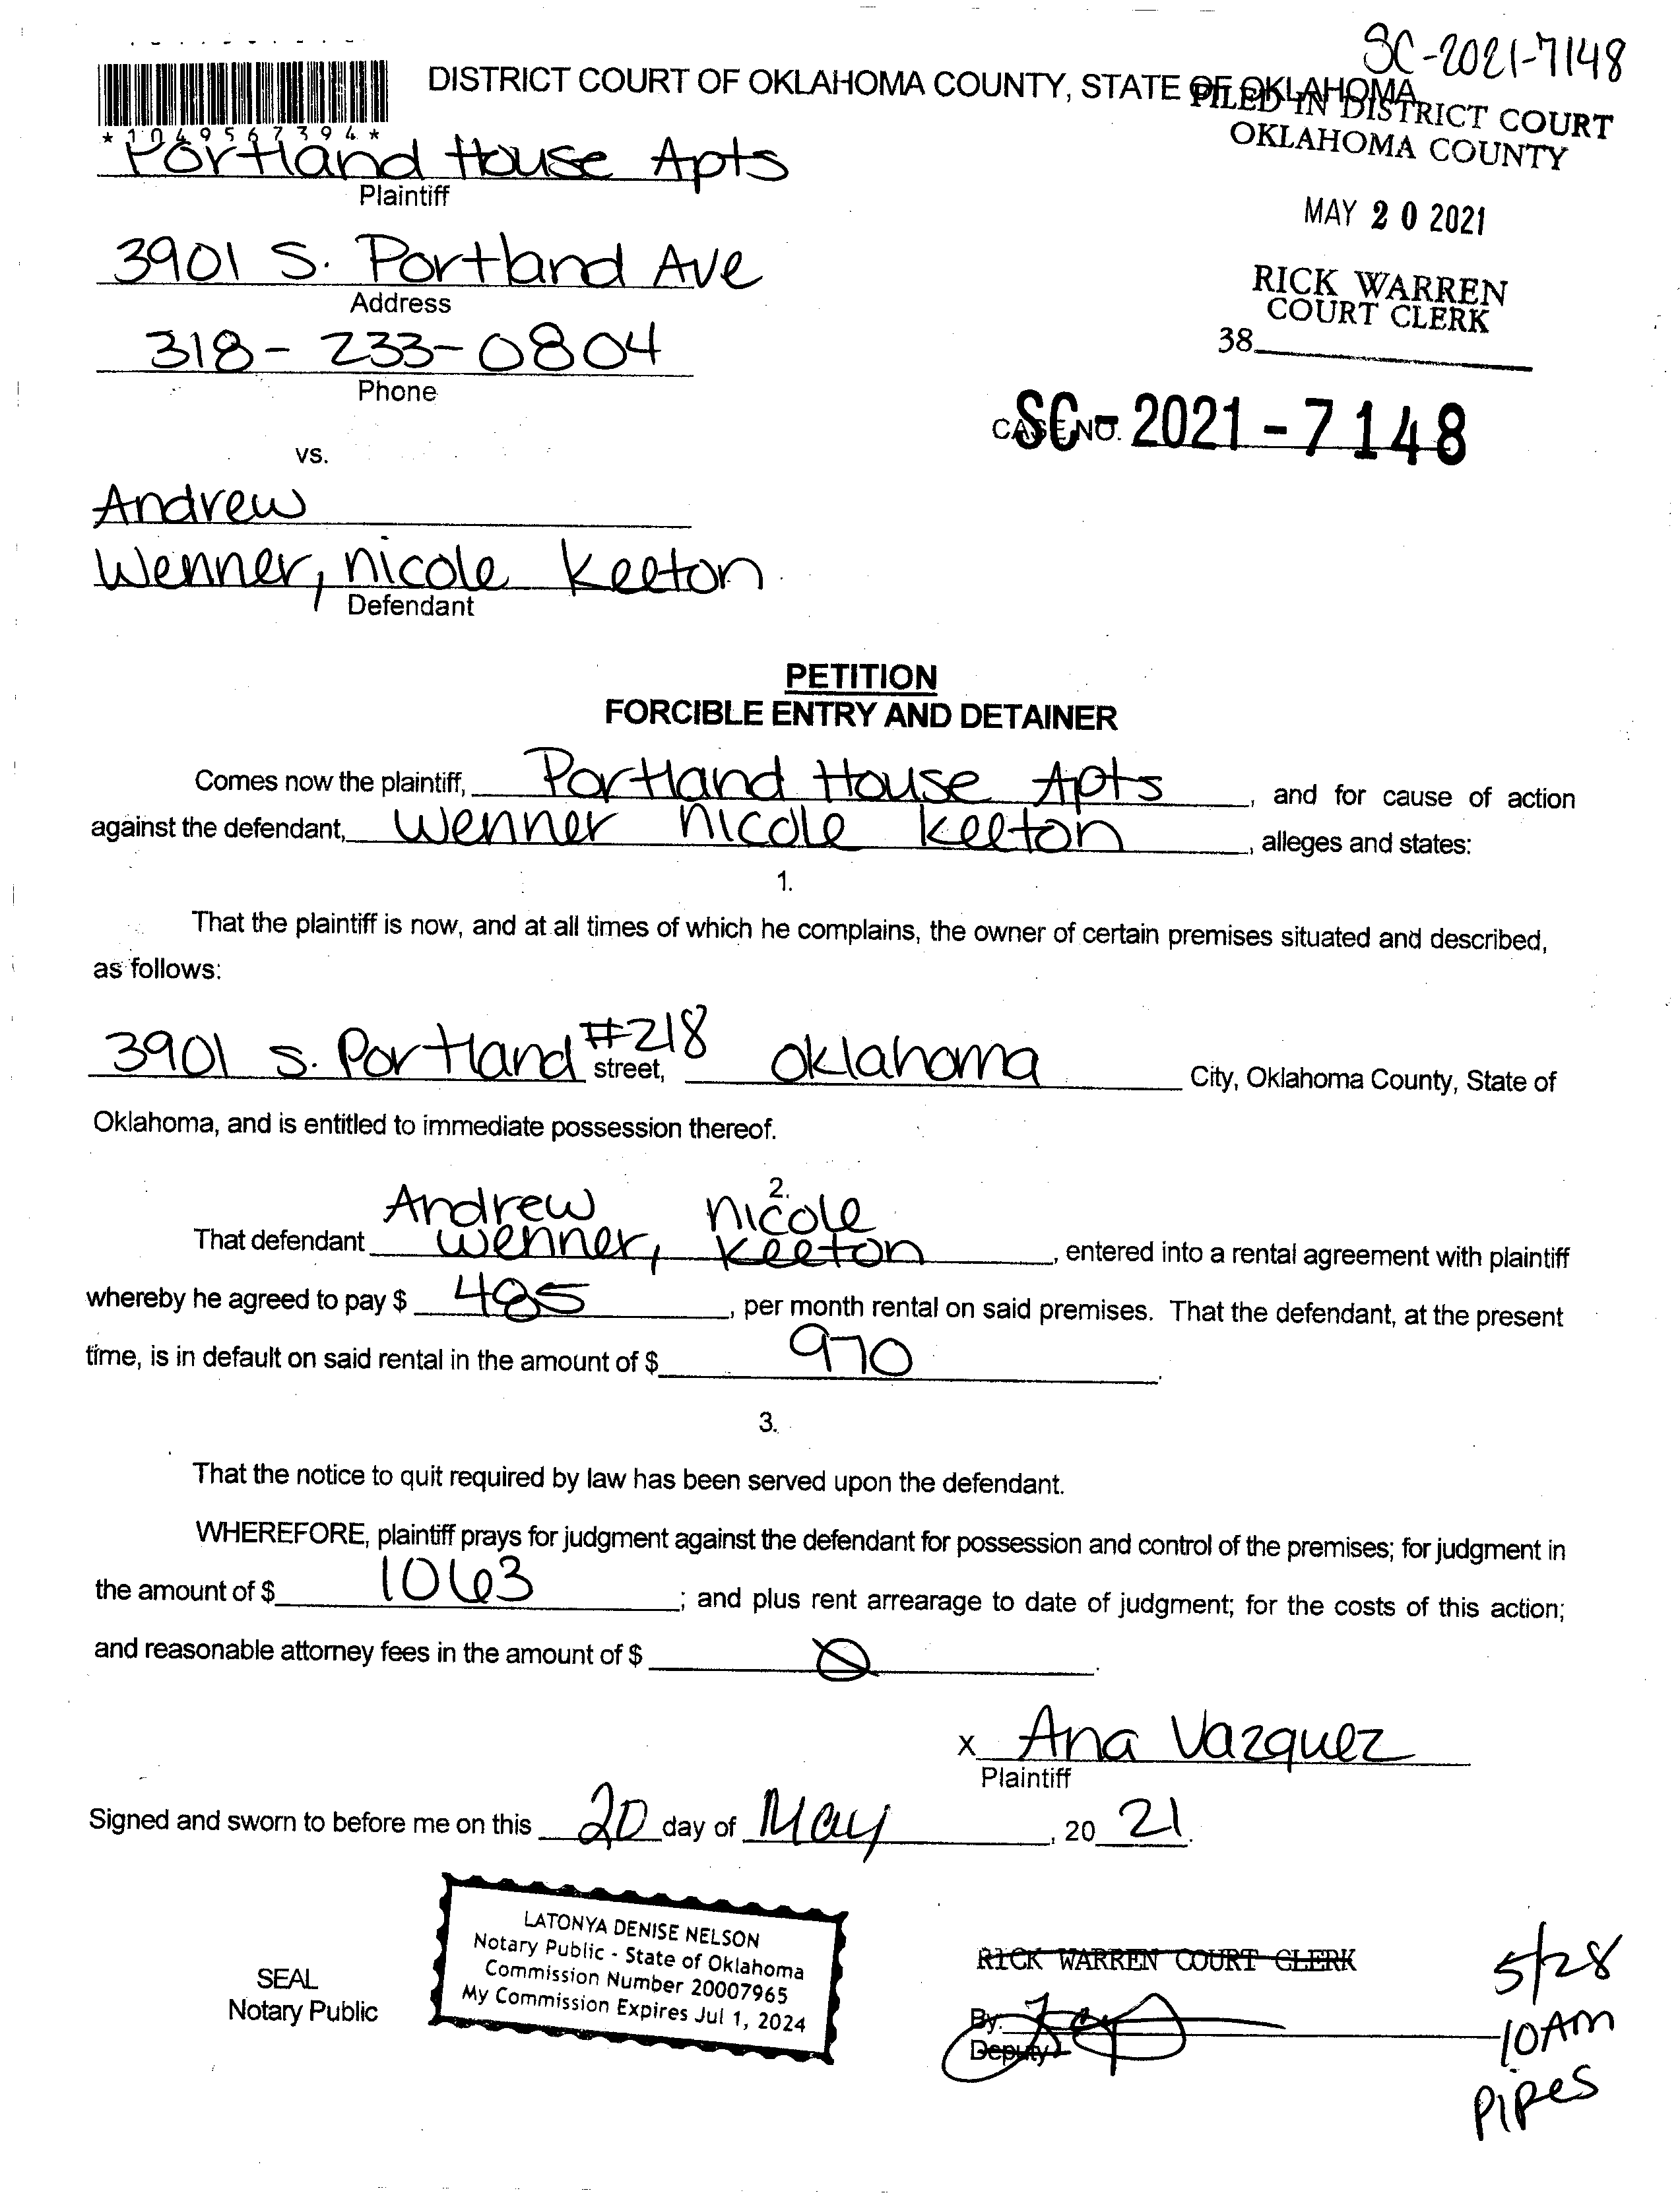 SC-2021-7148
DISTRICT COURT OF OKLAHOMA COUNTY, STATE OF OKLAHOMA
FILED IN DISTRICT COURT
OKLAHOMA COUNTY
*1049567394*
Portland House Apts
Plaintiff
MAY 20 2021
3901 S. Portland Ave
Address
RICK WARREN
COURT CLERK
38
318-233-0804
Phone
CASE NO. SC-2021-7148
vs.
Andrew
Wenner, nicole Keeton
Defendant
PETITION
FORCIBLE ENTRY AND DETAINER
Comes now the plaintiff, Portland House Apts, and for cause of action
against the defendant, Wenner nicole keeton, alleges and states:
1.
That the plaintiff is now, and at all times of which he complains, the owner of certain premises situated and described,
as follows:
3901 S. Portland #218 street, oklahoma City, Oklahoma County, State of
Oklahoma, and is entitled to immediate possession thereof.
2.
Andrew nicole
That defendant wenner, keeton, entered into a rental agreement with plaintiff
whereby he agreed to pay $ 485, per month rental on said premises. That the defendant, at the present
time, is in default on said rental in the amount of $ 970.
3.
That the notice to quit required by law has been served upon the defendant.
WHEREFORE, plaintiff prays for judgment against the defendant for possession and control of the premises; for judgment in
the amount of $ 1063; and plus rent arrearage to date of judgment; for the costs of this action;
and reasonable attorney fees in the amount of $ Ø.
x Ana Vazquez
Plaintiff
Signed and sworn to before me on this 20 day of May, 2021.
LATONYA DENISE NELSON
Notary Public - State of Oklahoma
Commission Number 20007965
My Commission Expires Jul 1, 2024
SEAL
Notary Public
RICK WARREN COURT CLERK
By.
Deputy
5/28
10AM
Pipes